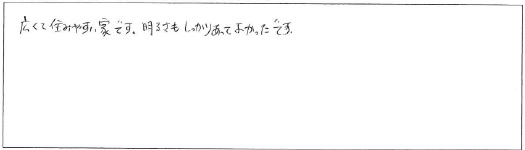 広くて住みやすい家です。明るさもしっかりあってよかったです。